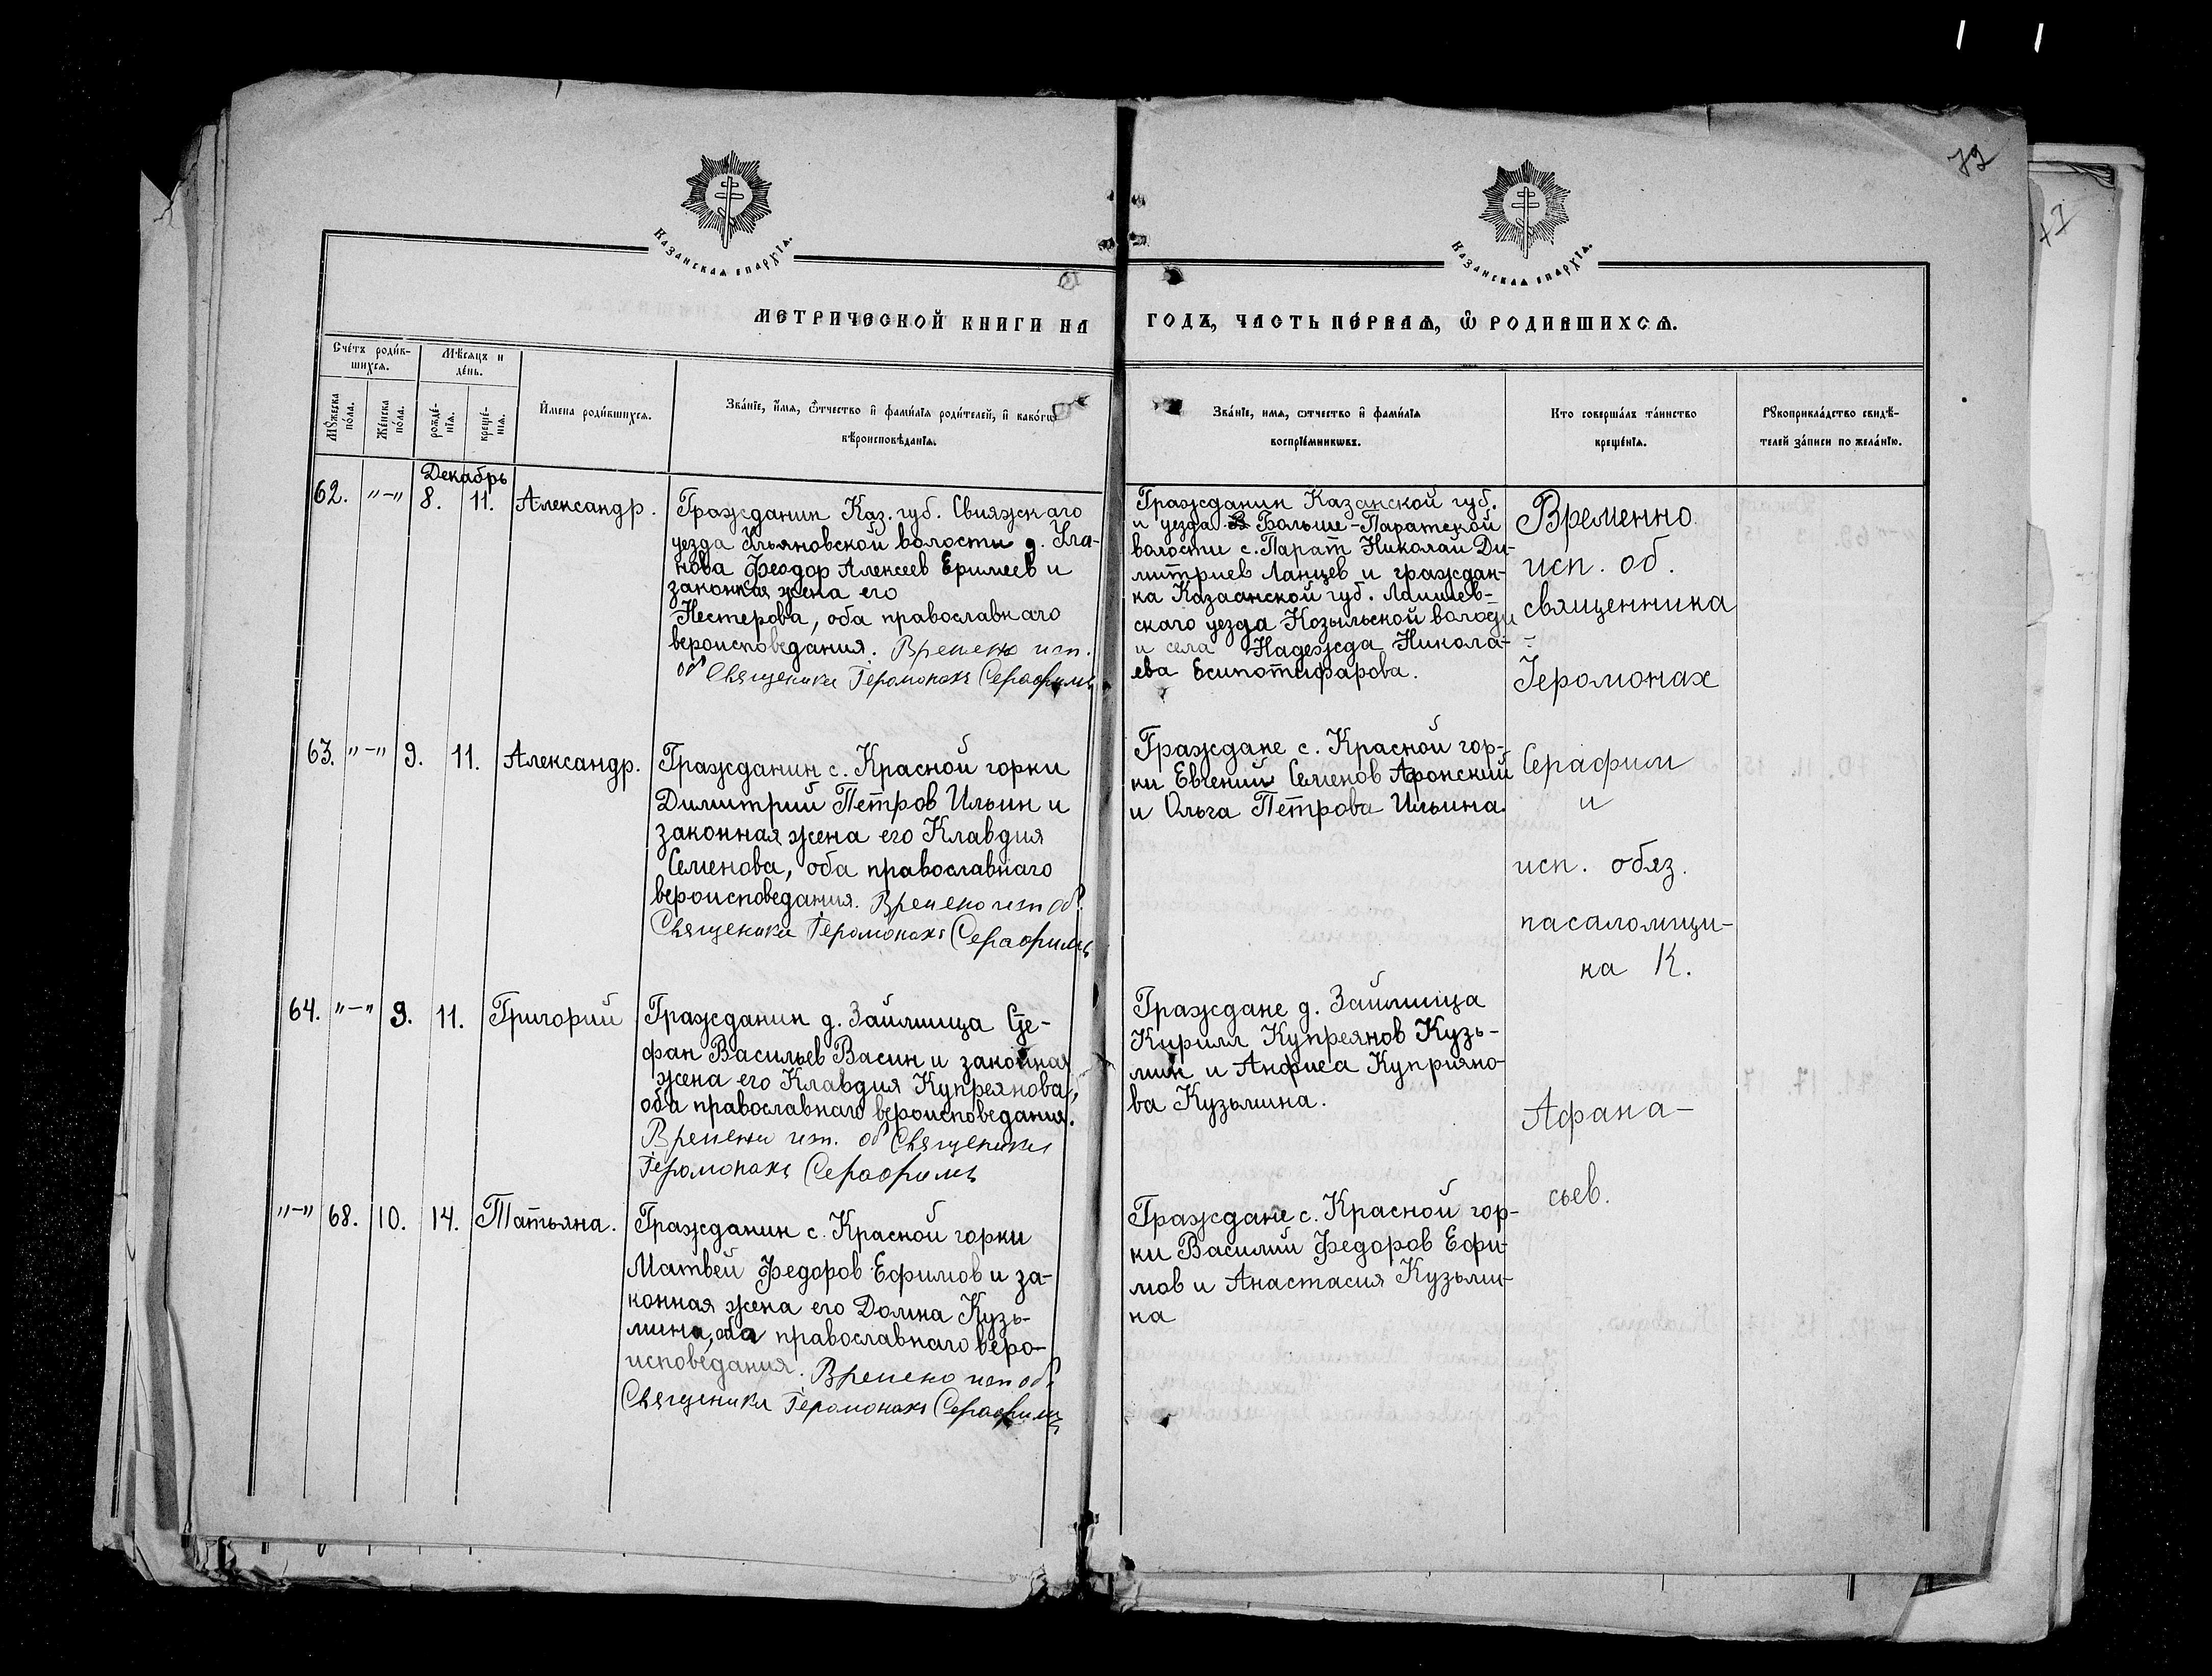 72
Казанская епархїа.
Казанская епархїа.
Метрической книги на
годъ, часть первая, ѡ родившихся.
Счетъ родив-
шихся.
Мѣсяцъ и
день.
Мужеска
пола.
Женска
пола.
рожде-
нїя.
креще-
нїя.
Имена родившихся.
Званїе, имя, ѿтчество и фамилїя родителей, и какогѡ
вѣроисповѣданїя.
Званїе, имя, ѿтчество и фамилїя
воспрїемникѡвъ.
Кто совершалъ таинство
крещенїя.
Рукоприкладство свидѣ-
телей записи по желанїю.
Декабрь
62. "-" 8. 11. Александр.
Гражданин Каз. губ. Свияжскаго
уезда Ульяновской волости д.
нова Феодор Алексеев Еримеев и
законная жена его
Нестерова, оба православнаго
вероисповедания. Времено исп.
об Священика Іеромонахъ Серафимъ
Гражданин Казанской губ.
и уезда Больше-Паратской
волости с. Парат Николай Ди-
митриев Ланцев и граждан-
ка Казаанской губ. Лаишев-
скаго уезда Козыльской
и села Надежда Никола-
ева
Временно
исп. об.
священника
-
Іеромонах
63. "-" 9. 11. Александр.
Гражданин с. Красной горки
Димитрий Петров Ильин и
законная жена его Клавдия
Семенова, оба православнаго
вероисповедания. Времено исп об.
Священика Іеромонахъ Серафимъ
Граждане с. Красной гор-
ки Евгений Семенов Афонский
и Ольга Петрова Ильина.
Серафим
и
исп. обяз.
пасаломщи-
ка К.
64. "-" 9. 11. Григорий
Гражданин д. Займища Сте-
фан Васильев Васин и законная
жена его Клавдия Купреянова,
оба православнаго вероисповедания.
Времено исп. об Священика
Іеромонахъ Серафимъ
Граждане д. Займища
Кирилл Купреянов Кузь-
мин и Анфиса Куприяно-
ва Кузьмина.
Афана-
сьев.
"-" 68. 10. 14. Татьяна.
Гражданин с. Красной горки
Матвей Федоров Ефимов и за-
конная жена его Домна Кузь-
мина, оба православнаго веро-
исповедания. Времено исп об.
Священика Іеромонахъ Серафимъ
Граждане с. Красной гор-
ки Василий Федоров Ефи-
мов и Анастасия Кузьми-
на